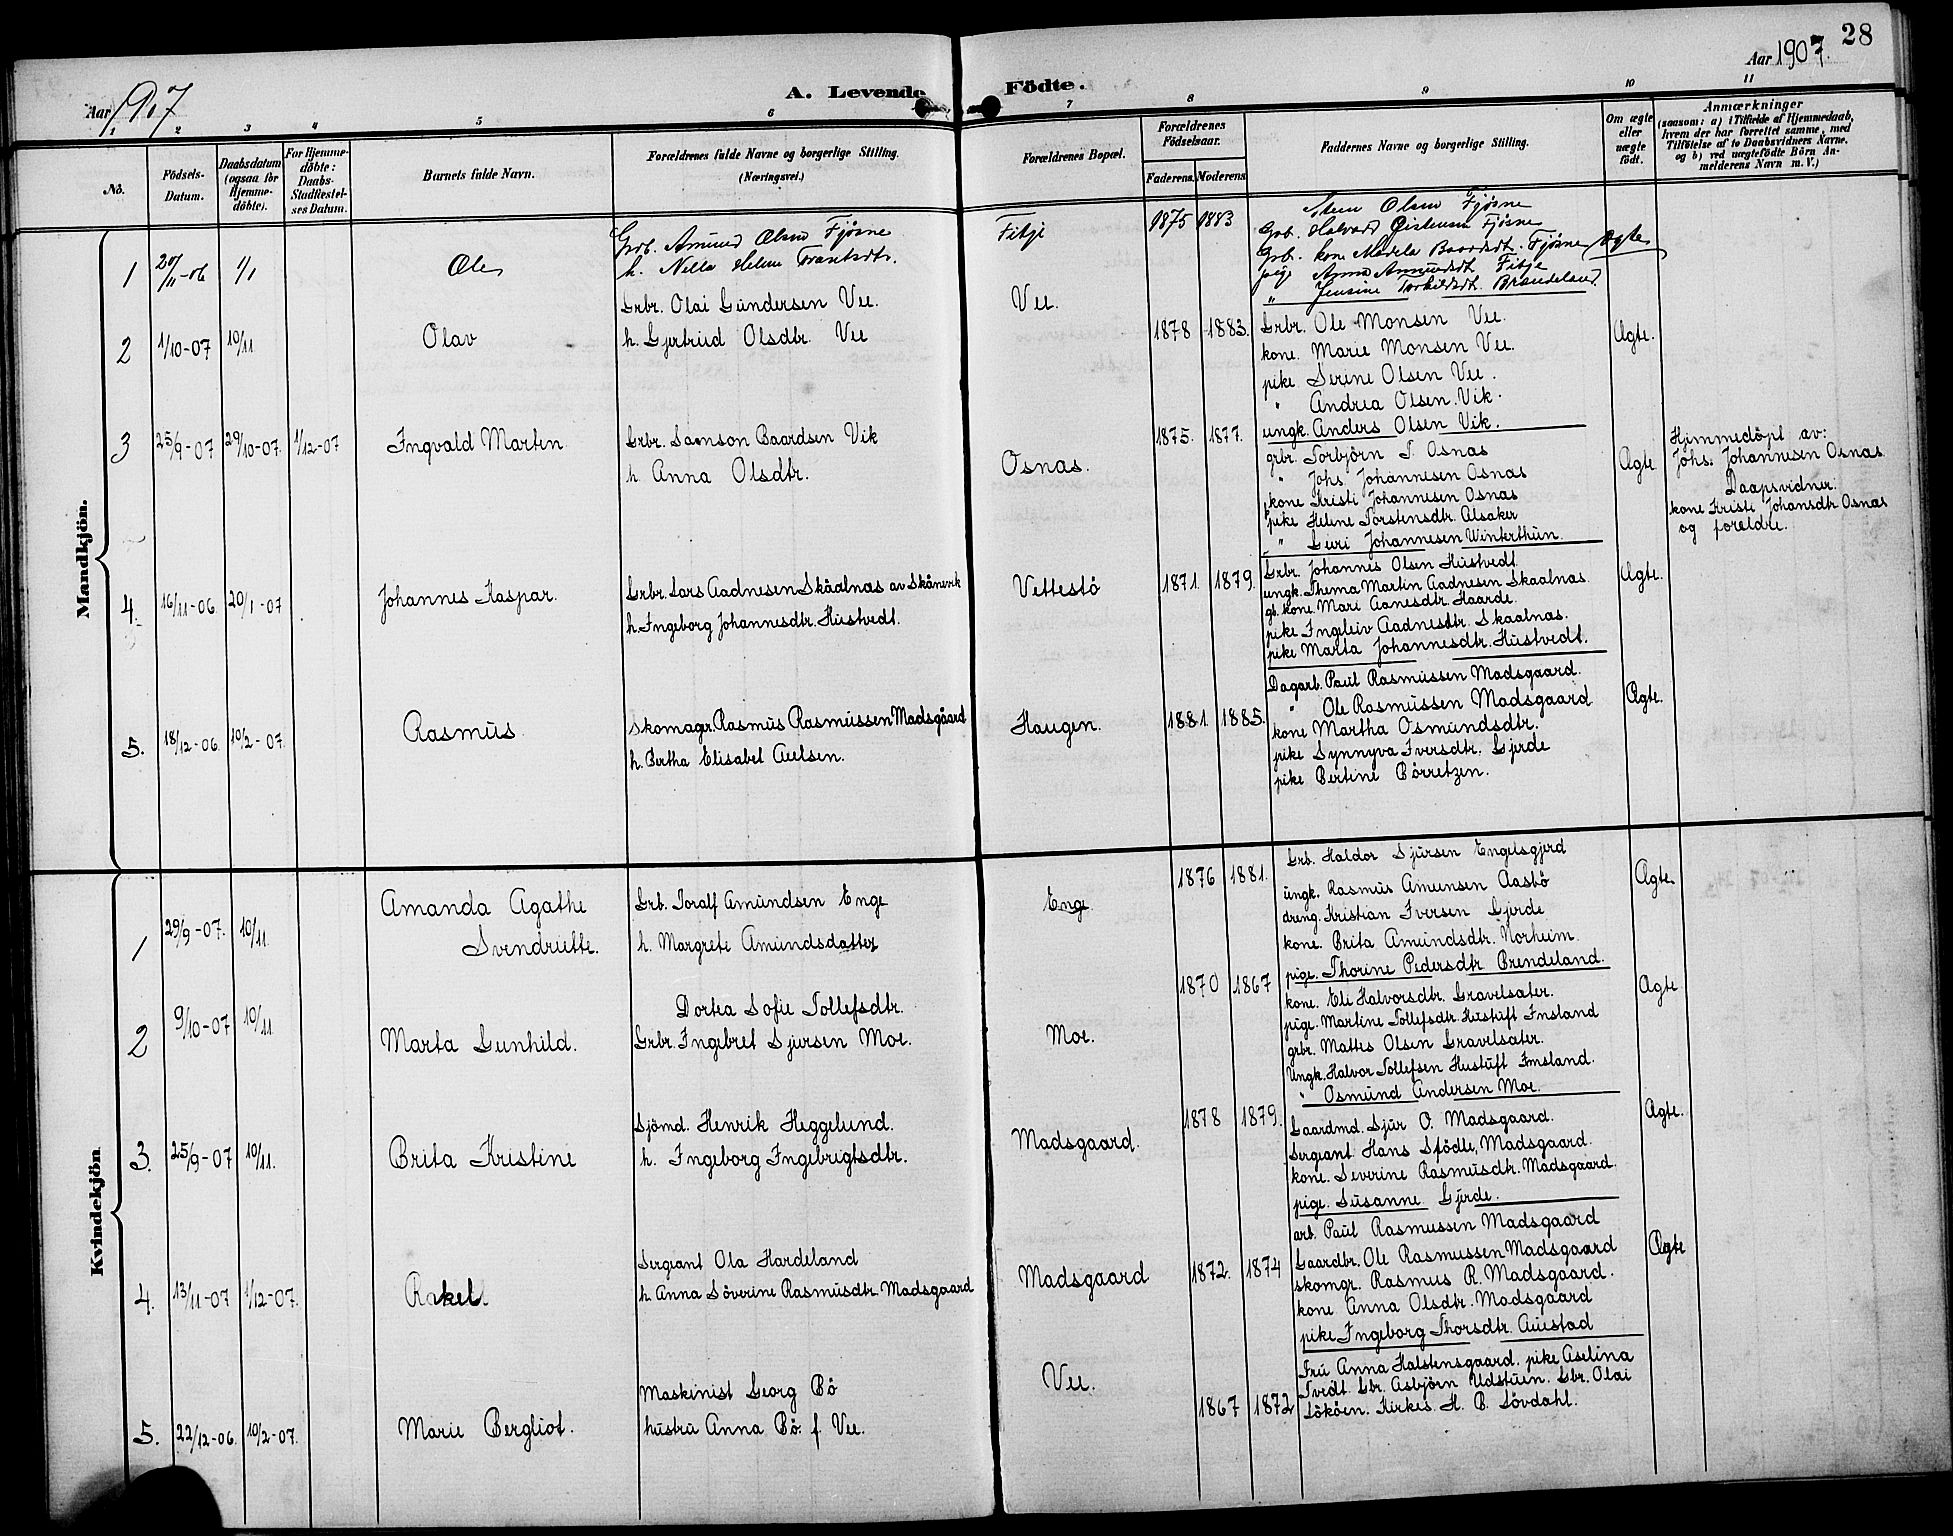 28
Aar 1907
A. Levende Födte.
Aar 1907.
1 2 3 4 5 6 7 8 9 10 11
No.
Födsels-Datum.
Daabsdatum (ogsaa for Hjemmedöbte).
For Hjemmedöbte: Daabs-Stadfæstelses Datum.
Barnets fulde Navn.
Forældrenes fulde Navne og borgerlige Stilling. (Næringsvei.)
Forældrenes Bopæl.
Forældrenes Födselsaar.
Faderens. Moderens
Faddernes Navne og borgerlige Stilling.
Om ægte eller uægte födt.
Anmærkninger
(saasom: a) i Tilfælde af Hjemmedaab, hvem der har forrettet samme, med Tilföielse af to Daabsvidners Navne, og b) ved uægtefödte Börn Anmelderens Navn m. V.)
Mandkjön.
1 20/11-06 1/1 Ole
Grb. Amund Olsen Fjösne
h. Nella Helene
Fitje
1875 1883
Olsen Fjösne
Grb. Halvard Fjösne
Grb. kone Baardsdt. Fjösne
pige Anna Amundsdt Fitje
" Jensine Brandeland.
Ægte
2 1/10-07 10/11 Olav
Grbr. Olai Gundersen Vee.
h. Gjertrud Olsdtr. Vee
Vee.
1878 1883.
Grbr. Ole Monsen Vee.
kone. Marie Monsen Vee.
pike Serine Olsen Vee.
" Andrea Olsen Vik.
ungk. Anders Olsen Vik.
Ægte.
3 25/9-07 29/10-07. 1/12-07 Ingvald Martin
Grbr. Samson Baardsen Vik
h. Anna Olsdtr.
Osnas.
1875. 1877.
grbr. Torbjörn T. Osnas
" Johs. Johannesen Osnas
kone Kristi Johannesen Osnas
pike Helene Torstensdtr. Alsaker
" Guri Johannesen Winterthun.
Ægte
Hjemmedöpt av:
Johs. Johannesen Osnas.
Daapsvidner:
kone Kristi Johansdtr Osnas
og foreldre.
4. 16/11-06. 20/1-07 Johannes Kaspar.
Grbr. Lars Aadnesen Skåalnas av Skånevik
h. Ingeborg Johannesdtr. Hustvedt.
Vettestö
1871. 1879.
Grbr. Johannes Olsen Hustvedt
ungk. Thema Martin Aadnesen Skaalnas.
gb. kone. Mari Aanesdtr. Haarde.
pike Ingeleiv Aadnesdtr. Skaalnas.
pike Marta Johannesdtr. Hustvedt.
Ægte.
5. 18/12-06. 10/2-07. Rasmus
Skomagr. Rasmus Rasmussen Madsgåard
h. Bertha Elisabet Auelsen.
Haugen.
1881. 1885.
Dagarb. Paul Rasmussen Madsgaard.
" Ole Rasmussen Madsgaard
kone Martha Osmundsdtr.
pike Synnyva Iversdtr. Gjerde
pike Bertine Börretzen.
Ægte.
Kvindekjön
1 29/9-07. 10/11. Amanda Agathe
Svendriette.
Grb. Toralf Amundsen Enge
h. Margrete Amundsdatter
Enge.
1876 1881.
Grb. Haldor Sjursen Engelsgjerd
ungk. Rasmus Amunsen Aasbö
dreng. Kristian Iversen Gjerde
kone. Brita Amundsdtr. Norheim.
pige. Thorine Pedersdtr Brendeland.
Ægte.
2 9/10-07 10/11. Marta Gunhild.
Dortea Sofie Tollefsdtr.
Grbr. Ingebret Sjursen Moe.
Moe.
1870 1867
kone. Eli Halvorsdtr. Gravelsater.
pige. Martine Tollefsdtr. Hustuft Imsland
grbr. Mattes Olsen Gravelsater.
Ungk. Halvor Tollefsen Hustuft Imsland.
" Osmund Andersen Moe.
Ægte
3. 25/9-07 10/11. Brita Kristine
Sjömd. Henrik Heggelund.
h. Ingeborg Ingebrigtsdtr.
Madsgaard.
1878 1879.
Gaardmd. Sjur O. Madsgaard.
Sergeant Hans Spödle, Madsgaard.
kone. Severine Rasmusdtr. Madsgaard.
pige. Susanne Gjerde.
Ægte.
4. 13/11-07 1/12-07. Rakel.
Sergeant Ola Hardeland
h. Anna Söverine Rasmusdtr. Madsgaard
Madsgaard
1872. 1874
arb. Paul Rasmussen Madsgaard
Gaardbr. Ole Rasmussen Madsgaard
skomgr. Rasmus R. Madsgaard.
kone Anna Olsdtr. Madsgaard
pike Ingeborg Thorsdtr. Auestad
Ægte
5. 22/12-06. 10/2-07. Marie Bergliot.
Maskinist Georg Bö
hustru Anna Bö. f. Vee.
Vee.
1867 1872
Fru Anna Halstensgaard. pike Aselina
Tvedt Gbr. Asbjörn Udstuen. Gbr. Olai
Lököen. Kirkes. H. B. Lövdahl.